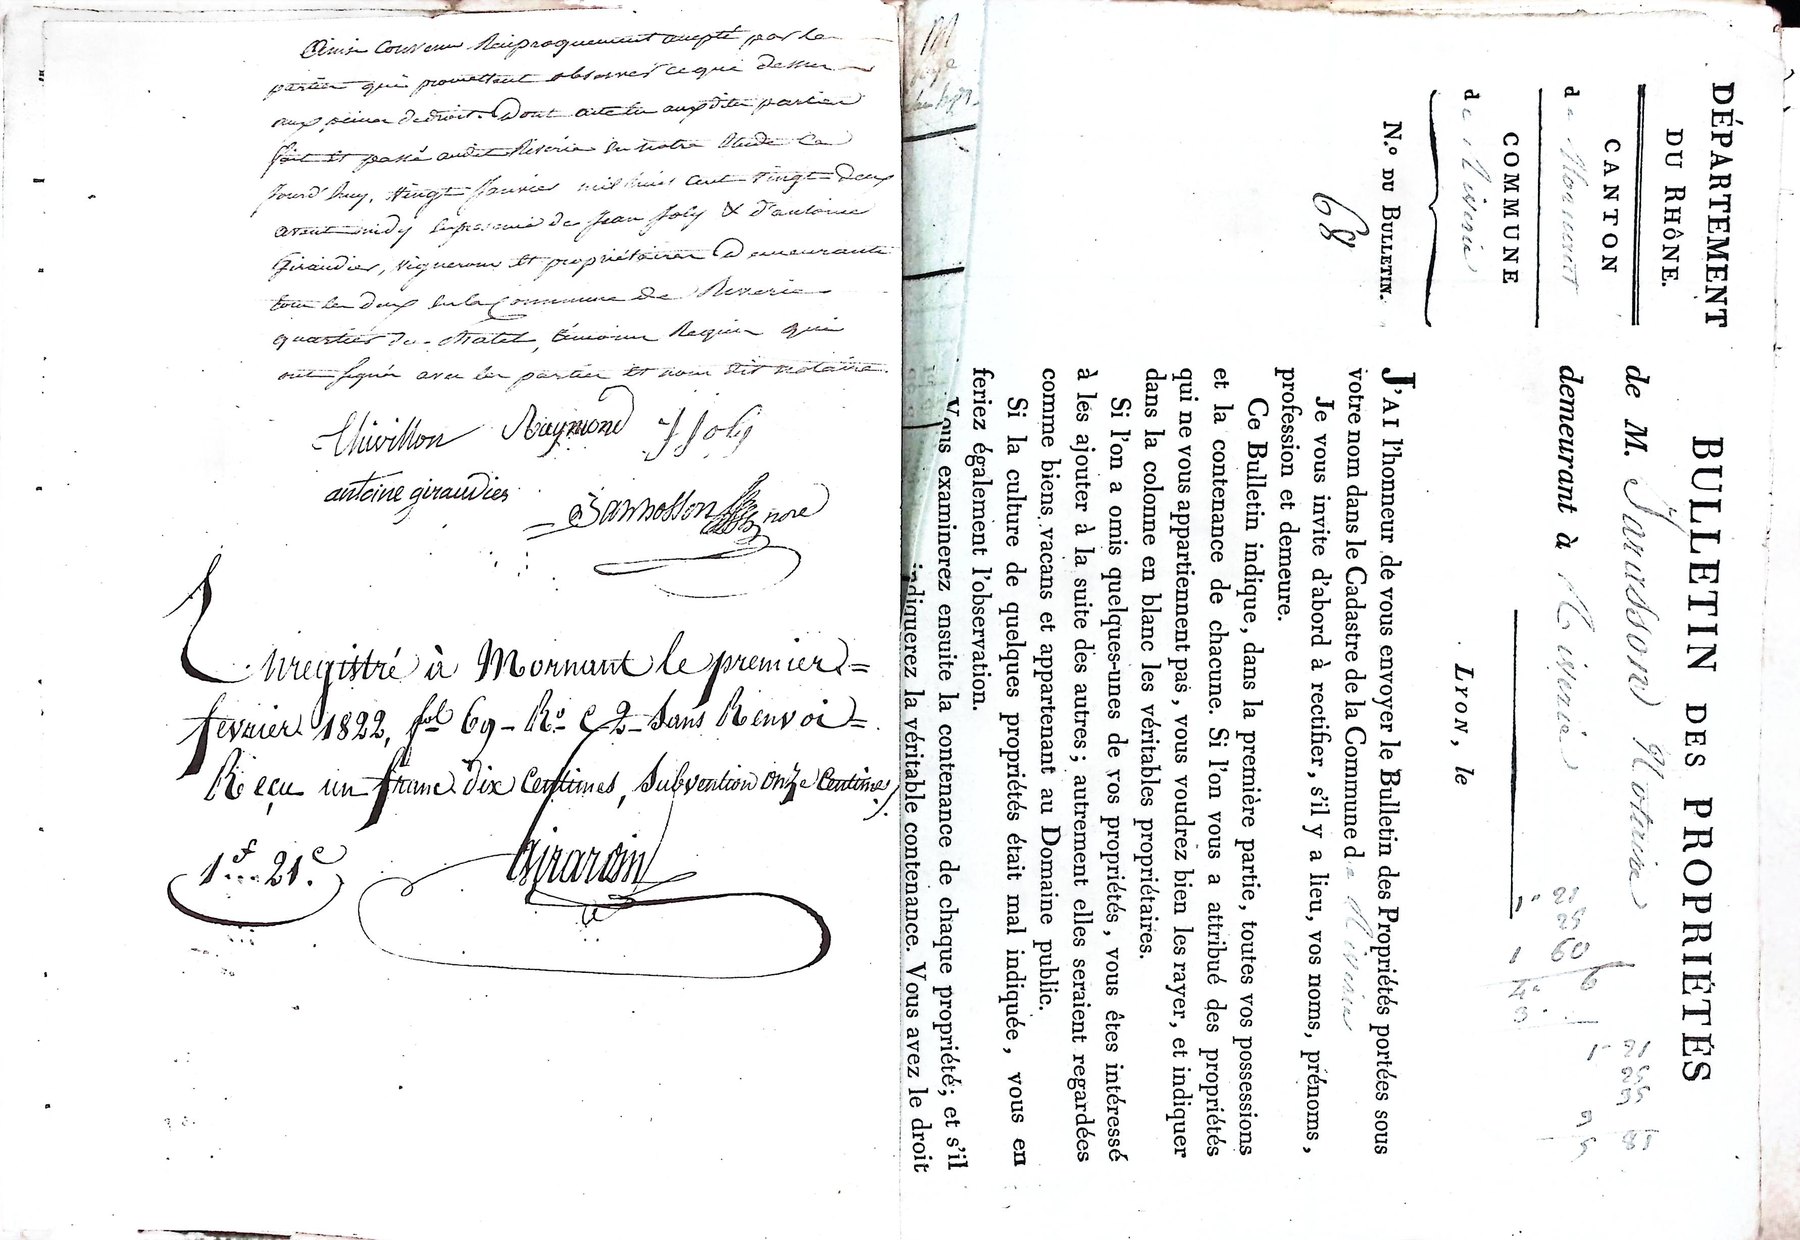 Ainsi convenu Réciproquement accepté par les
parties qui promettent observer ce que dessus
aux peines de droit. Dont acte lu auxdites parties
fait et passé audit Riverie en notre Etude Ce
jourd'huy, vingt Janvier mil huit cent vingt-deux
avant midy en présence de Jean Joly & d'antoine
Giraudier, vignerons et propriétaires Demeurants
tous les deux sur la Commune de Riverie
quartier du Châtel, témoins Requis qui
ont signés avec les parties et nous dit notaire.
Chivillon Raymond J Joly
antoine giraudier
Jarrosson nore
Enregistré à Mornant le premier
fevrier 1822, fol 69 - Ro C 2 - Sans Renvoi
Reçu un franc dix Centimes, Subvention onze Centimes
1 f 21 c.
Girardin
DÉPARTEMENT
DU RHÔNE.
CANTON
de Mornant
COMMUNE
de Riverie
N.o DU BULLETIN.
68
BULLETIN DES PROPRIÉTÉS
de M. Jarrosson Notaire
demeurant à Riverie
LYON, le
J'AI l'honneur de vous envoyer le Bulletin des Propriétés portées sous
votre nom dans le Cadastre de la Commune de Riverie
Je vous invite d'abord à rectifier, s'il y a lieu, vos noms, prénoms,
profession et demeure.
Ce Bulletin indique, dans la première partie, toutes vos possessions
et la contenance de chacune. Si l'on vous a attribué des propriétés
qui ne vous appartiennent pas, vous voudrez bien les rayer, et indiquer
dans la colonne en blanc les véritables propriétaires.
Si l'on a omis quelques-unes de vos propriétés, vous êtes intéressé
à les ajouter à la suite des autres; autrement elles seraient regardées
comme biens vacans et appartenant au Domaine public.
Si la culture de quelques propriétés était mal indiquée, vous en
feriez également l'observation.
Vous examinerez ensuite la contenance de chaque propriété; et s'il
indiquerez la véritable contenance. Vous avez le droit
1 " 21
25
1 60
4 " 6
3
1 " 21
25
35